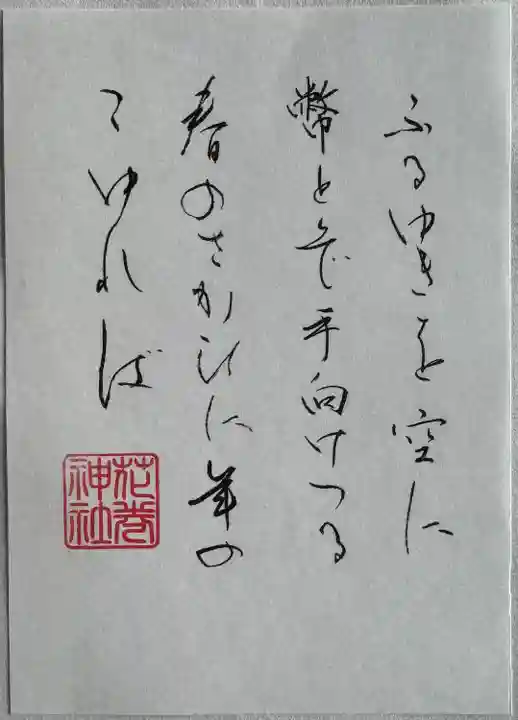 ふるゆきを空に
幣とぞ手向けつる
春のさかひに年の
こゆれば
花巻神社